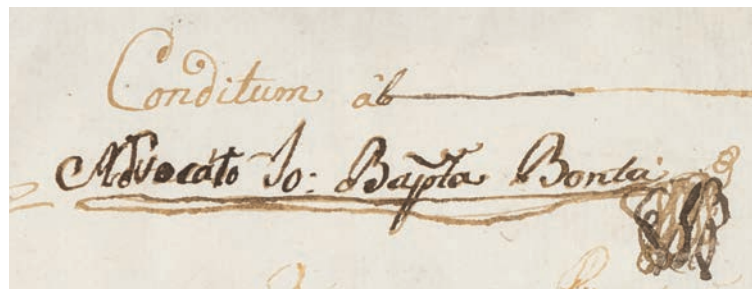 Conditum ab
Advocato Jo: Bapta Bonta